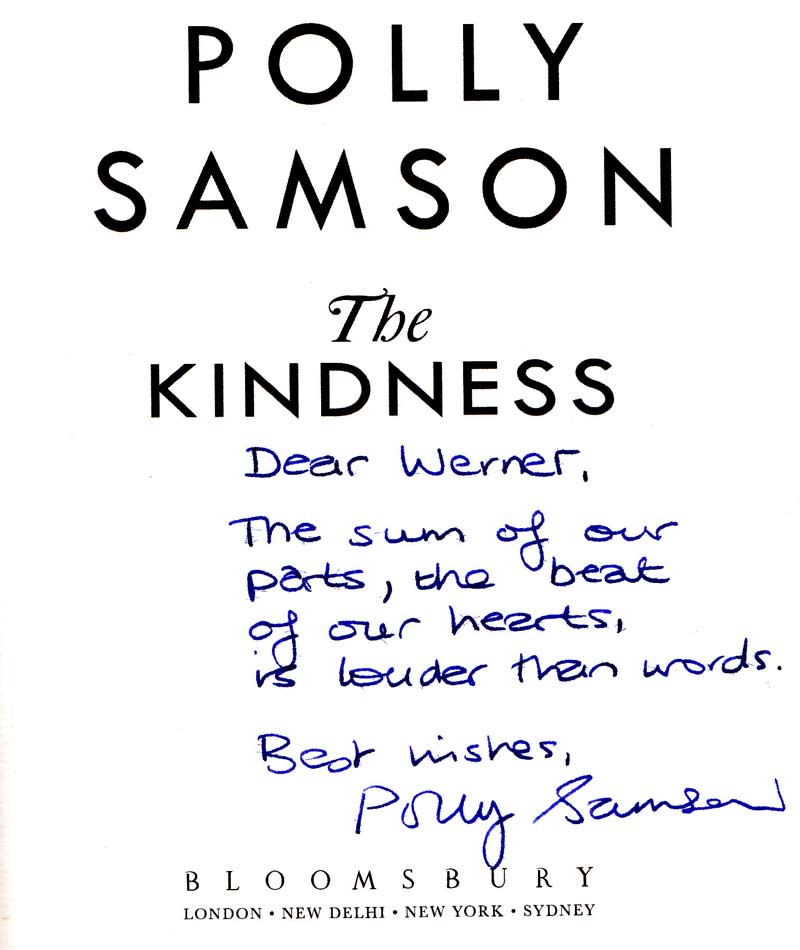 POLLY
SAMSON
The
KINDNESS
Dear Werner,
The sum of our
parts, the beat
of our hearts,
is louder than words.
Best wishes,
Polly Samson
BLOOMSBURY
LONDON • NEW DELHI • NEW YORK • SYDNEY